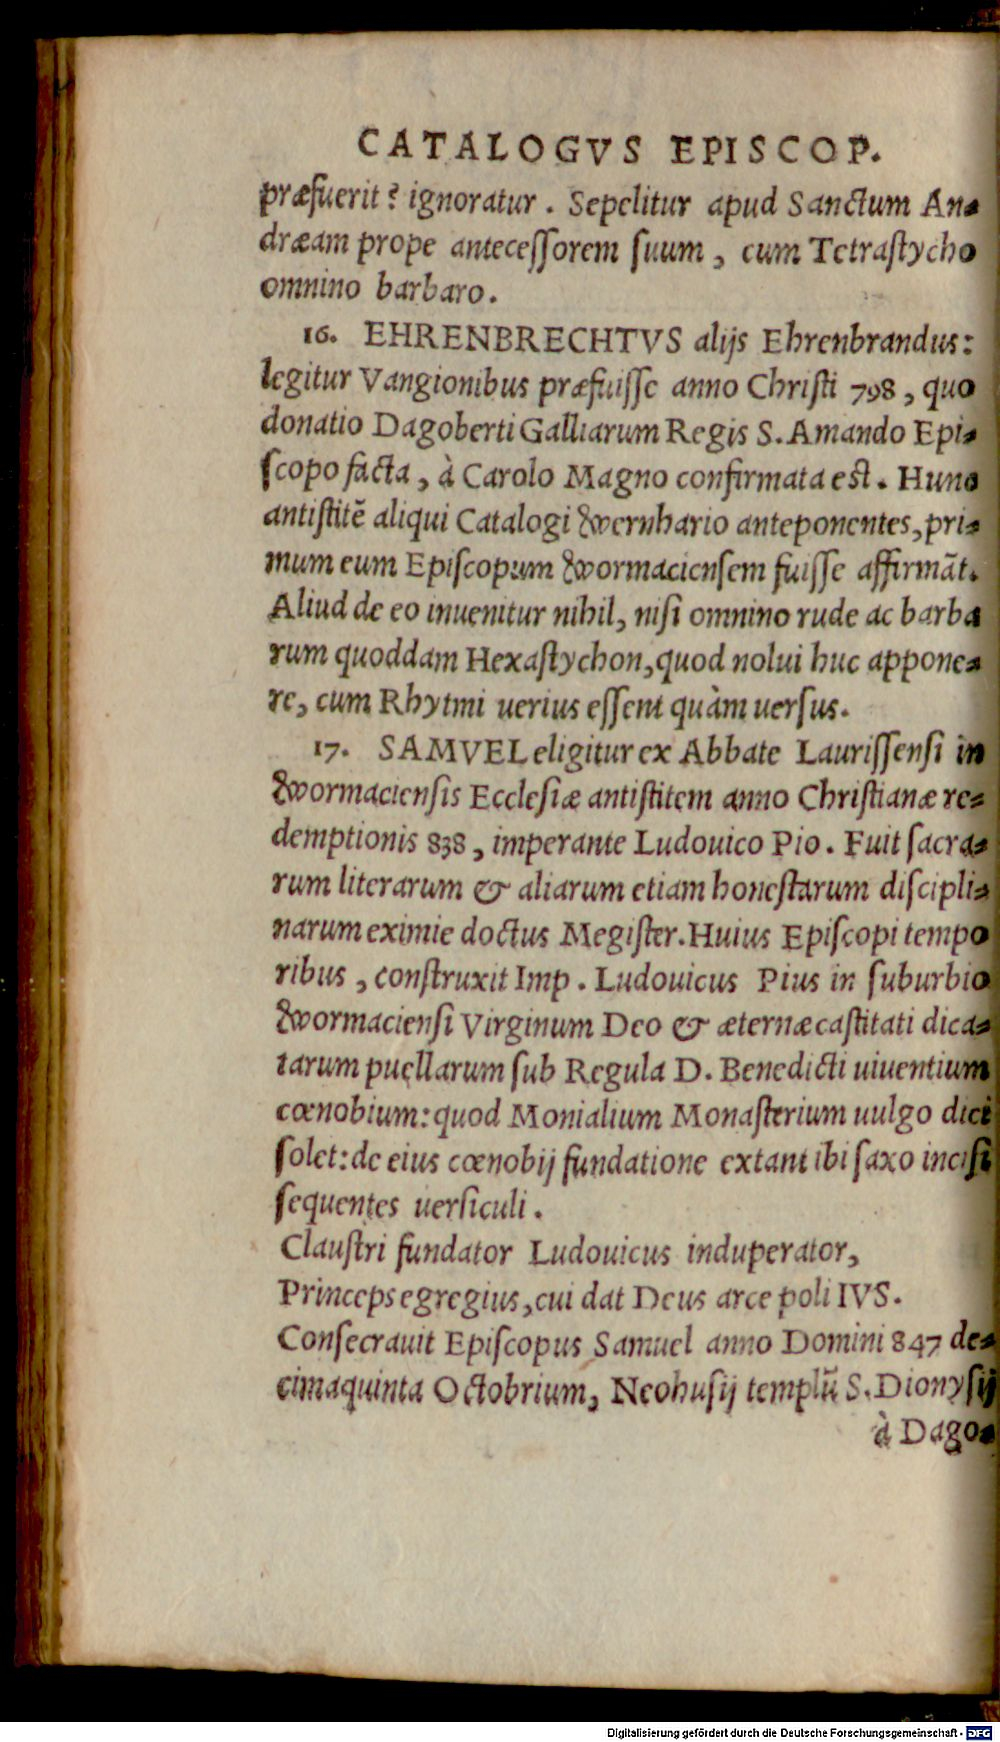 CATALOGVS EPISCOP.
præfuerit? ignoratur. Sepelitur apud Sanctum An-
dræam prope antecessorem suum, cum Tetrastycho
omnino barbaro.
16. EHRENBRECHTVS alijs Ehrenbrandus:
legitur Vangionibus præfuisse anno Christi 798, quo
donatio Dagoberti Galliarum Regis S. Amando Epi-
scopo facta, à Carolo Magno confirmata est. Hunc
antistitē aliqui Catalogi Wernhario anteponentes, pri-
mum eum Episcopum Wormaciensem fuisse affirmāt.
Aliud de eo inuenitur nihil, nisi omnino rude ac barba
rum quoddam Hexastychon, quod nolui huc appone-
re, cum Rhytmi uerius essent quàm uersus.
17. SAMVEL eligitur ex Abbate Laurissensi in
Wormaciensis Ecclesiæ antistitem anno Christianæ re-
demptionis 838, imperante Ludouico Pio. Fuit sacra-
rum literarum & aliarum etiam honestarum discipli-
narum eximie doctus Megister. Huius Episcopi tempo
ribus, construxit Imp. Ludouicus Pius in suburbio
Wormaciensi Virginum Deo & æternæ castitati dica-
tarum puellarum sub Regula D. Benedicti uiuentium
cœnobium: quod Monialium Monasterium uulgo dici
solet: de eius cœnobij fundatione extant ibi saxo incisi
sequentes uersiculi.
Claustri fundator Ludouicus induperator,
Princeps egregius, cui dat Deus arce poli IVS.
Consecrauit Episcopus Samuel anno Domini 847 de-
cimaquinta Octobrium, Neohusij templū S. Dionysij
à Dago-
Digitalisierung gefördert durch die Deutsche Forschungsgemeinschaft - DFG